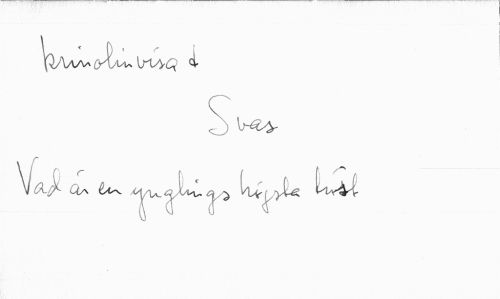 krinolinvisa d
Svar
Vad är en ynglings högsta